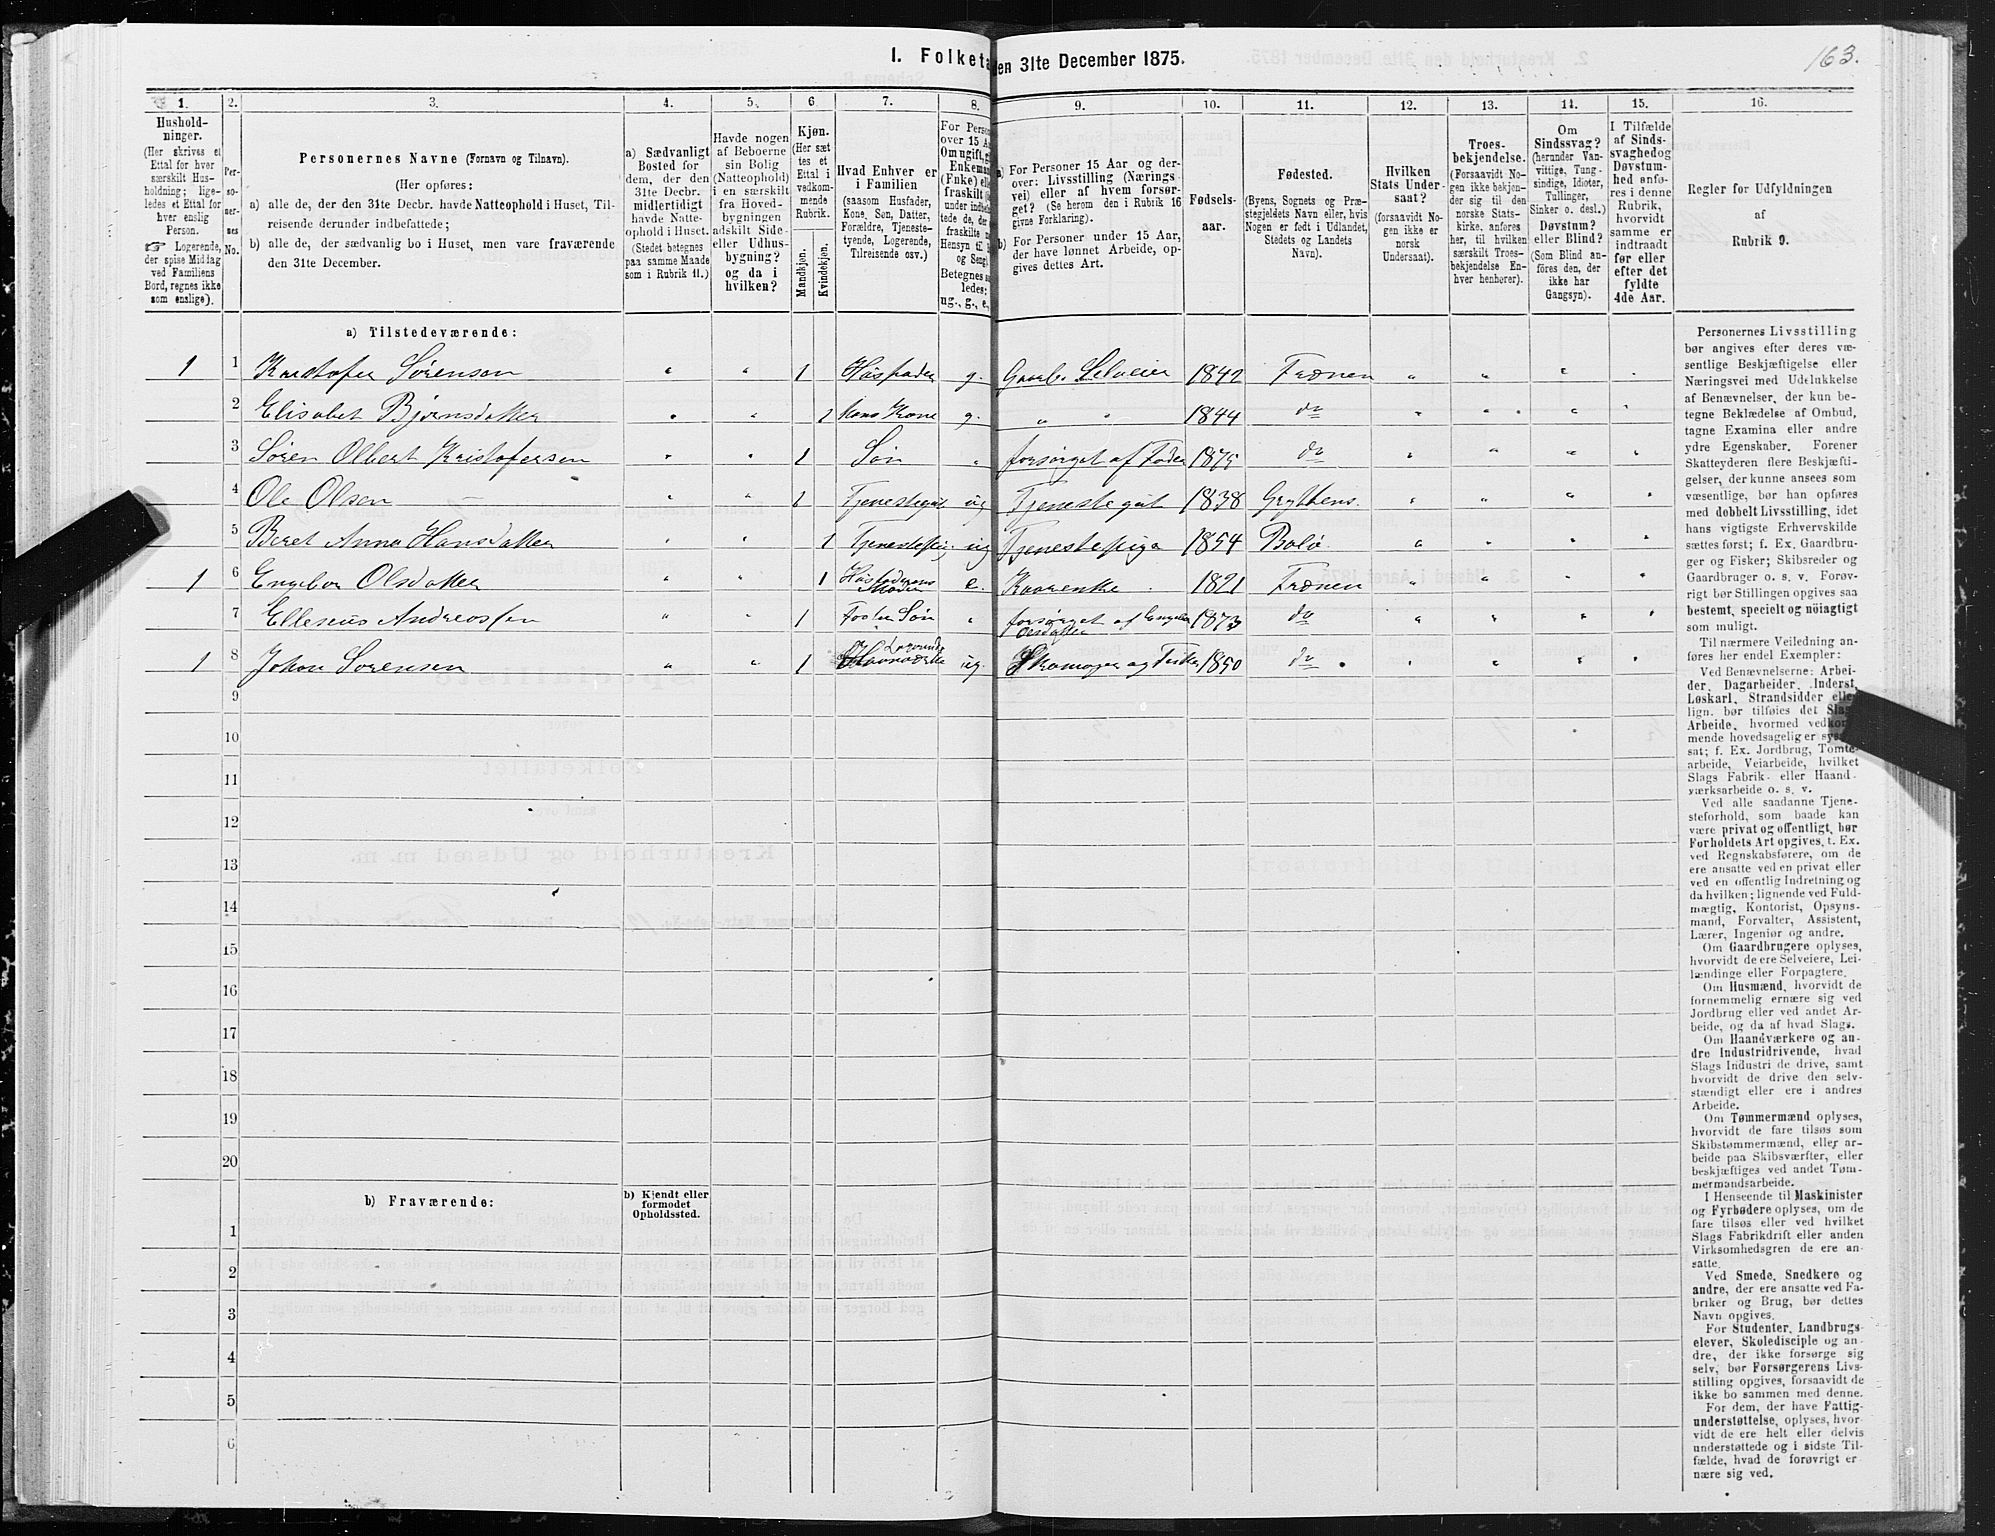 163.
I. Folketa
en 31te December 1875.
1. 2. 3. 4. 5. 6. 7. 8. 9. 10. 11. 12. 13. 14. 15. 16.
Hushold-
ninger.
(Her skrives et
Ettal for hver
særskilt Hus-
holdning; lige-
ledes et Ettal for
hver enslig
Person.
☞ Logerende,
der spise Middag
ved Familiens
Bord, regnes ikke
som enslige).
Per-
so-
ner-
nes
No.
Personernes Navne (Fornavn og Tilnavn).
(Her opføres:
a) alle de, der den 31te Decbr. havde Natteophold i Huset, Til-
reisende derunder indbefattede;
b) alle de, der sædvanlig bo i Huset, men vare fraværende
den 31te December.
a) Sædvanligt
Bosted for
dem, der den
31te Decbr.
midlertidigt
havde Natte-
ophold i Huset.
(Stedet betegnes
paa samme Maade
som i Rubrik 11.)
Havde nogen
af Beboerne
sin Bolig
(Natteophold)
i en særskilt
fra Hoved-
bygningen
adskilt Side-
eller Udhus-
bygning?
og da i
hvilken?
Kjøn.
(Her sæt
tes et
Ettal i
vedkom-
mende
Rubrik.
Mandkjøn.
Kvindekjøn.
Hvad Enhver er
i Familien
(saasom Husfader,
Kone, Søn, Datter,
Forældre, Tjeneste-
tyende, Logerende,
Tilreisende osv.)
For Perso
over 15 Aa
Om ugift, g
Enkeman
(Enke) elle
fraskilt (
under indbe
tede de, der
fraskilte
Hensyn til
og Seng)
Betegnes s
ledes:
ug., g., e.,
a) For Personer 15 Aar og der-
over: Livsstilling (Nærings
vei) eller af hvem forsør-
get? (Se herom den i Rubrik 16
givne Forklaring).
b) For Personer under 15 Aar,
der have lønnet Arbeide, op-
gives dettes Art.
Fødsels-
aar.
Fødested.
(Byens, Sognets og Præ-
stegjeldets Navn eller, hvis
Nogen er født i Udlandet,
Stedets og Landets
Navn).
Hvilken
Stats Under-
saat?
(forsaavidt No-
gen ikke er
norsk
Undersaat).
Troes-
bekjendelse.
(Forsaavidt No-
gen ikke bekjen-
der sig til den
norske Stats-
kirke, anføres
her, til hvilken
særskilt Troes-
bekjendelse En-
hver henhører).
Om
Sindssvag?
(herunder Van-
vittige, Tung-
sindige, Idioter,
Tullinger,
Sinker o. desl.)
Døvstum?
eller Blind?
(Som Blind an-
føres den, der
ikke har
Gangsyn).
I Tilfælde
af Sinds-
svaghed og
Døvstum-
hed anfø-
res i denne
Rubrik,
hvorvidt
samme er
indtraadt
før eller
efter det
fyldte
4de Aar.
Regler for Udfyldningen
af
Rubrik 9.
a) Tilstedeværende:
1 1 Kristofer Sørensen " " 1 Husfader g. Gaarb. Selveier 1842 Frænen " " " "
2 Elisabet Bjørnsdatter " " 1 Hans Kone g. " " 1844 do " " " "
3 Søren Olbert Kristofersen " " 1 Søn " forsørget af Fader 1875 do " " " "
4 Ole Olsen — " " 1 Tjenestegut ug Tjenestegut 1838 Gryttens. " " " "
5 Beret Anna Hansdatter " " 1 Tjenestepig ug Tjenestepige 1854 Bolsø. " " " "
1 6 Engebor Olsdatter " " 1 Husfaderens Moder e. Kaarenke 1821 Frænen " " " "
7 Elleseus Andreassen " " 1 Foster Søn " forsørget af Engebor Olsdatter 1873 do " " " "
1 8 Johan Sørensen " " 1 Logerende ug. Skomager og Fisker 1850 do " " " "
9
10
11
12
13
14
15
16
17
18
19
20
b) Fraværende:
b) Kjendt eller
formodet
Opholdssted.
1
2
3
4
5
6
Personernes Livsstilling
bør angives efter deres væ-
sentlige Beskjæftigelse eller
Næringsvei med Udelukkelse
af Benævnelser, der kun be-
tegne Beklædelse af Ombud,
tagne Examina eller andre
ydre Egenskaber. Forener
Skatteyderen flere Beskjæfti-
gelser, der kunne ansees som
væsentlige, bør han opføres
med dobbelt Livsstilling, idet
hans vigtigste Erhvervskilde
sættes først; f. Ex. Gaardbru-
ger og Fisker; Skibsreder og
Gaardbruger o. s. v. Forøv-
rigt bør Stillingen opgives saa
bestemt, specielt og nøiagtigt
som muligt.
Til nærmere Veiledning an-
føres her endel Exempler:
Ved Benævnelserne: Arbei-
der, Dagarbeider, Inderst,
Løskarl, Strandsidder eller
lign. bør tilføies det Slags
Arbeide, hvormed vedkom-
mende hovedsagelig er syssel-
sat; f. Ex. Jordbrug, Tømte-
arbeide, Veiarbeide, hvilket
Slags Fabrik- eller Haand-
værksarbeide o. s. v.
Ved alle saadanne Tjene-
steforhold, som baade kan
være privat og offentligt, bør
Forholdets Art opgives, t. Ex.
ved Regnskabsførere, om de
ere ansatte ved en privat eller
ved en offentlig Indretning og
da hvilken; lignende ved Fuld-
mægtig, Kontorist, Opsyns-
mand, Forvalter, Assistent,
Lærer, Ingeniør og andre.
Om Gaardbrugere oplyses,
hvorvidt de ere Selveiere, Lei-
lændinge eller Forpagtere.
Om Husmænd, hvorvidt de
fornemmelig ernære sig ved
Jordbrug eller ved andet Ar-
beide, og da af hvad Slags.
Om Haandværkere og an-
dre Industridrivende, hvad
Slags Industri de drive, samt
hvorvidt de drive den selv-
stændigt eller ere i andres
Arbeide.
Om Tømmermænd oplyses,
hvorvidt de fare tilsøs som
Skibstømmermænd, eller ar-
beide paa Skibsværfter, eller
beskjæftiges ved andet Tøm-
mermandsarbeide.
I Henseende til Maskinister
og Fyrbødere oplyses, om de
fare tilsøs eller ved hvilket
Slags Fabrikdrift eller anden
Virksomhedsgren de ere an-
satte.
Ved Smede, Snedkere og
andre, der ere ansatte ved Fa-
briker og Brug, bør dettes
Navn opgives.
For Studenter, Landbrugs-
elever, Skoledisciple og an-
dre, der ikke forsørge sig
selv, bør Forsørgerens Livs-
stilling opgives, forsaavidt de
ikke bo sammen med denne.
For dem, der have Fattig-
understøttelse, oplyses, hvor-
vidt de ere helt eller delvis
understøttede og i sidste Til-
fælde, hvad de forøvrigt er-
nære sig ved.